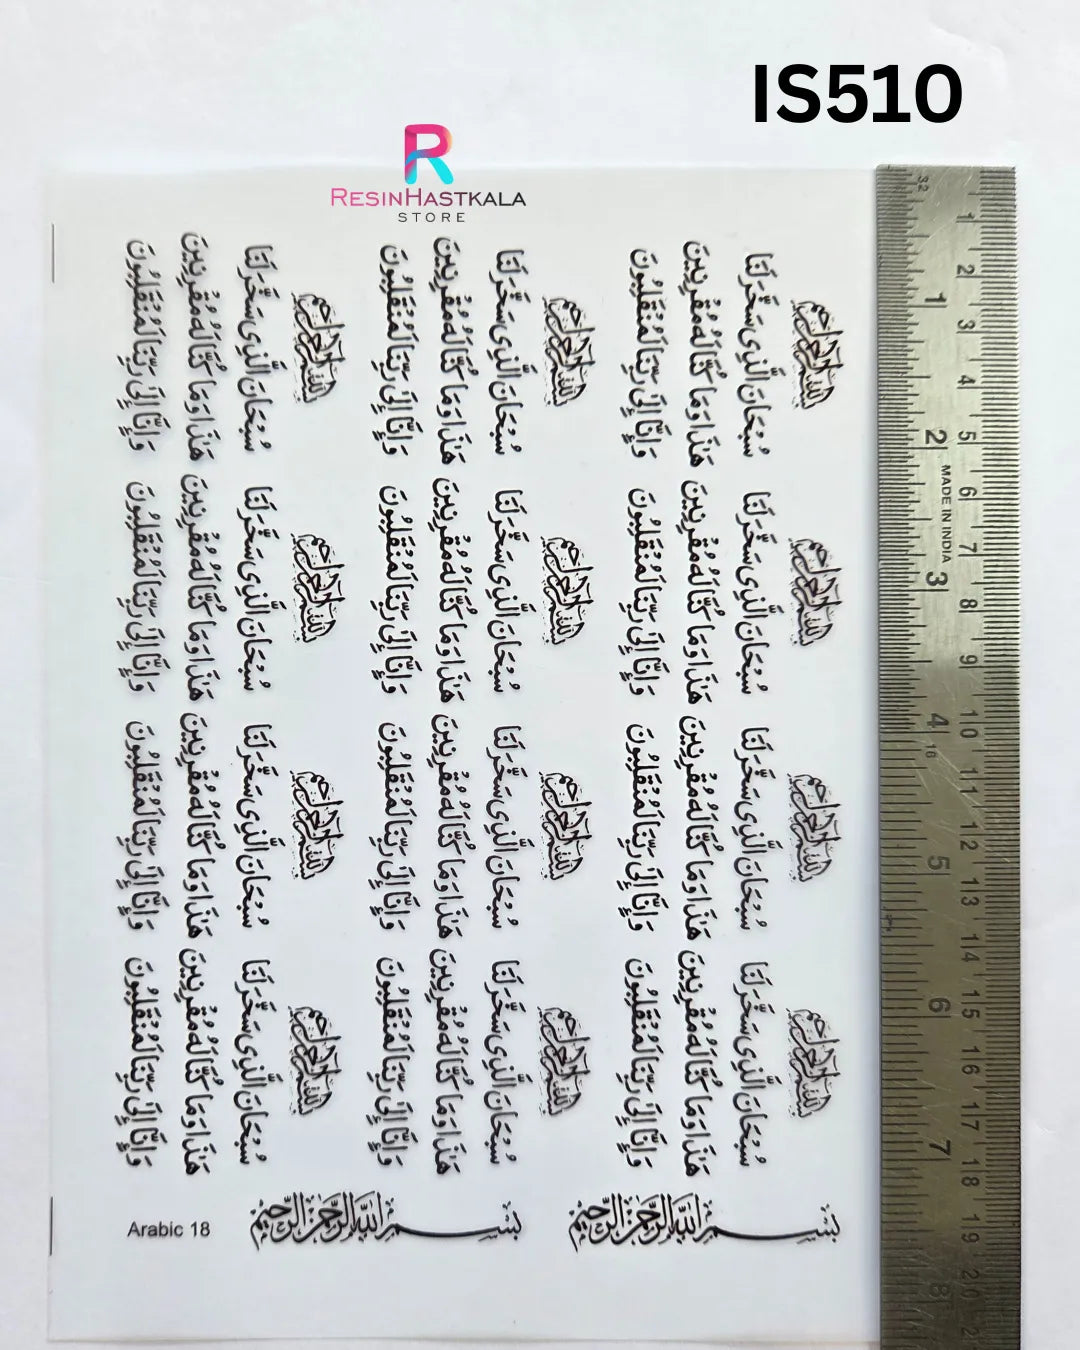 IS510
R
RESINHASTKALA
STORE
بسم الله الرحمن الرحيم
سُبْحَانَ الَّذِى سَخَّرَ لَنَا
هَٰذَا وَمَا كُنَّا لَهُ مُقْرِنِينَ
وَإِنَّا إِلَىٰ رَبِّنَا لَمُنْقَلِبُونَ
بسم الله الرحمن الرحيم
سُبْحَانَ الَّذِى سَخَّرَ لَنَا
هَٰذَا وَمَا كُنَّا لَهُ مُقْرِنِينَ
وَإِنَّا إِلَىٰ رَبِّنَا لَمُنْقَلِبُونَ
بسم الله الرحمن الرحيم
سُبْحَانَ الَّذِى سَخَّرَ لَنَا
هَٰذَا وَمَا كُنَّا لَهُ مُقْرِنِينَ
وَإِنَّا إِلَىٰ رَبِّنَا لَمُنْقَلِبُونَ
بسم الله الرحمن الرحيم
سُبْحَانَ الَّذِى سَخَّرَ لَنَا
هَٰذَا وَمَا كُنَّا لَهُ مُقْرِنِينَ
وَإِنَّا إِلَىٰ رَبِّنَا لَمُنْقَلِبُونَ
بسم الله الرحمن الرحيم
سُبْحَانَ الَّذِى سَخَّرَ لَنَا
هَٰذَا وَمَا كُنَّا لَهُ مُقْرِنِينَ
وَإِنَّا إِلَىٰ رَبِّنَا لَمُنْقَلِبُونَ
بسم الله الرحمن الرحيم
سُبْحَانَ الَّذِى سَخَّرَ لَنَا
هَٰذَا وَمَا كُنَّا لَهُ مُقْرِنِينَ
وَإِنَّا إِلَىٰ رَبِّنَا لَمُنْقَلِبُونَ
بسم الله الرحمن الرحيم
سُبْحَانَ الَّذِى سَخَّرَ لَنَا
هَٰذَا وَمَا كُنَّا لَهُ مُقْرِنِينَ
وَإِنَّا إِلَىٰ رَبِّنَا لَمُنْقَلِبُونَ
بسم الله الرحمن الرحيم
سُبْحَانَ الَّذِى سَخَّرَ لَنَا
هَٰذَا وَمَا كُنَّا لَهُ مُقْرِنِينَ
وَإِنَّا إِلَىٰ رَبِّنَا لَمُنْقَلِبُونَ
بسم الله الرحمن الرحيم
سُبْحَانَ الَّذِى سَخَّرَ لَنَا
هَٰذَا وَمَا كُنَّا لَهُ مُقْرِنِينَ
وَإِنَّا إِلَىٰ رَبِّنَا لَمُنْقَلِبُونَ
بسم الله الرحمن الرحيم
سُبْحَانَ الَّذِى سَخَّرَ لَنَا
هَٰذَا وَمَا كُنَّا لَهُ مُقْرِنِينَ
وَإِنَّا إِلَىٰ رَبِّنَا لَمُنْقَلِبُونَ
بسم الله الرحمن الرحيم
سُبْحَانَ الَّذِى سَخَّرَ لَنَا
هَٰذَا وَمَا كُنَّا لَهُ مُقْرِنِينَ
وَإِنَّا إِلَىٰ رَبِّنَا لَمُنْقَلِبُونَ
بسم الله الرحمن الرحيم
سُبْحَانَ الَّذِى سَخَّرَ لَنَا
هَٰذَا وَمَا كُنَّا لَهُ مُقْرِنِينَ
وَإِنَّا إِلَىٰ رَبِّنَا لَمُنْقَلِبُونَ
Arabic 18
بسم الله الرحمن الرحيم
بسم الله الرحمن الرحيم
1 2 3 4 5 6 7 8 9 10 11 12 13 14 15 16 17 18 19 20
32 1 2 MADE IN INDIA 3 4 16 5 6 7 8